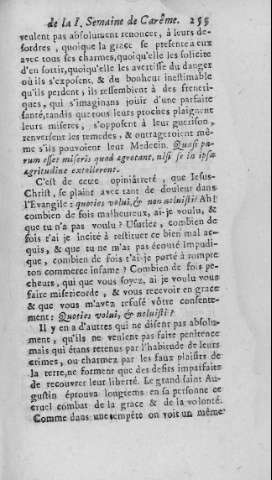 de la I. Semaine de Carême. 255
veulent pas absolument renoncer, à leurs de-
sordres, quoique la grace se presente a eux
avec tous ses charmes, quoiqu'elle les solicite
d'en sortir, quoiqu'elle les avertisse du danger
où ils s'exposent, & du bonheur inestimable
qu'ils perdent; ils ressemblent à des freneti-
ques, qui s'imaginans jouir d'une parfaite
santé, tandis que tous leurs proches plaignent
leurs miseres, s'opposent à leur guerison,
renversent les remedes, & outrageroient mê-
me s'ils pouvoient leur Medecin. Quasi pa-
rum esset miseris quod agrotant, nisi se in ipsa
agritudine extollerent.
C'est de cette opiniâtreté, que Jesus-
Christ, se plaint avec tant de douleur dans
l'Evangile: quoties volui, & non noluisti? Ah!
combien de fois malheureux, ai-je voulu, &
que tu n'a pas voulu? Usurier, combien de
fois t'ai je incité à restituer ce bien mal ac-
quis, & que tu ne m'as pas écouté Impudi-
que, combien de fois t'ai-je porté à rompre
ton commerce infame? Combien de fois pe-
cheurs, qui que vous soyez, ai je voulu vous
faire misericorde, & vous recevoir en grace
& que vous m'avez refusé vôtre consente-
ment: Quoties volui, & noluisti?
Il y en a d'autres qui ne disent pas absolu-
ment, qu'ils ne veulent pas faire penitence
mais qui étans retenus par l'habitude de leurs
crimes, ou charmez par les faux plaisirs de
la terre, ne forment que des desirs imparfaits
de recouvrer leur liberté. Le grand saint Au-
gustin éprouva longtems en sa personne ce
cruel combat de la grace & de la volonté.
Comme dans une tempête on voit un même